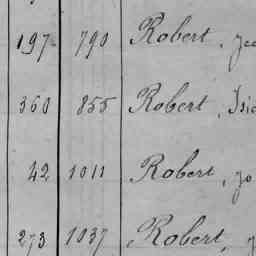 197 790 Robert,
360 855 Robert, Isid
42 1011 Robert, Jo
273 1037 Robert,